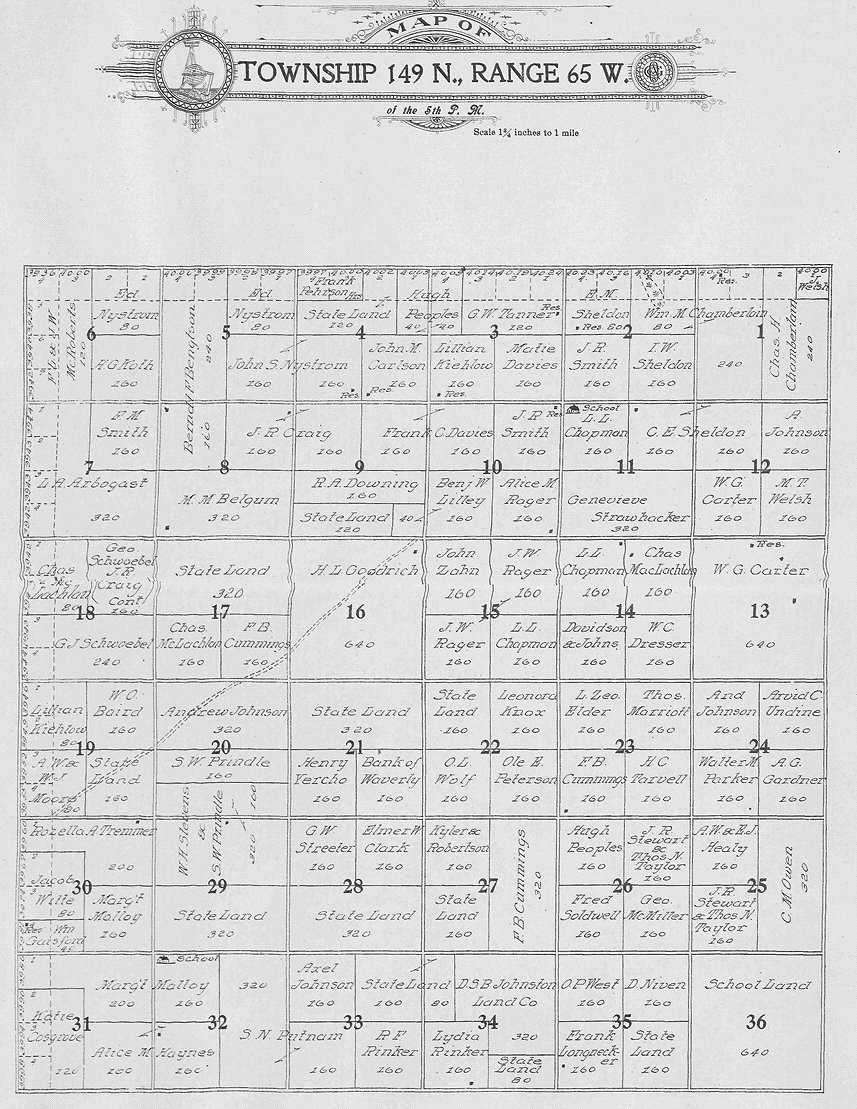 MAP OF
TOWNSHIP 149 N., RANGE 65 W.
of the 5th P. M.
Scale 1¾ inches to 1 mile
Ed
Nystrom
80
6
F.U. & J.W.
McRoberts
120
H G Koth
160
Ed
Nystrom
80
5
Berndt F Bengtson
240
160
John S. Nystrom
160
160
Frank
Pehrson
Res
State Land
120
4
Hugh
Peoples
40
40
John M.
Carlson
160
Res
Res
G.W. Tanner
Res
120
3
Lillian
Kiehlow
160
Res
Matie
Davies
160
E.M.
Sheldon
Res. 80
2
Wm. M. Chamberlain
80
J.R.
Smith
160
I.W.
Sheldon
160
Res.
Welsh
1
240
Chas. H
Chamberlain
240
F. M
Smith
160
7
L. A. Arbogast
320
J. R Craig
160
160
8
M. M. Belgum
320
Frank C. Davies
160
160
9
R. A. Downing
160
State Land
120
40
J.R
Res
Smith
160
10
Benj W
Lilley
160
Alice M
Rager
160
School
L.L.
Chapman
160
11
C. E. Sheldon
160
160
Genevieve
Strawhacker
320
A.
Johnson
160
12
W. G.
Carter
160
M.T.
Welsh
160
Chas
Lachlan
80
Geo.
Schwoebel
J. R
Craig
Cont
160
18
G J Schwoebel
240
State Land
320
17
Chas.
McLachlan
160
F. B.
Cummings
160
H L Goodrich
16
640
John
Zahn
160
J.W.
Rager
160
15
J. W.
Rager
160
L.L.
Chapman
160
L.L.
Chapman
160
Chas
MacLachlan
160
14
Davidson
& Johns
160
W.C.
Dresser
160
Res.
W. G. Carter
13
640
Lillian
Kiehlow
80
W. O.
Baird
160
19
A. W. &
W. J
Moore
80
State
Land
160
Andrew Johnson
320
20
S. W. Prindle
160
State Land
320
21
Henry
Yercho
160
Bank of
Waverly
160
State
Land
160
Leonora
Knox
160
22
O.L.
Wolf
160
Ole E.
Peterson
160
L Zeo.
Elder
160
Thos.
Marriott
160
23
F.B.
Cummings
160
H C
Tarvell
160
And
Johnson
160
Arvid C.
Undine
160
24
Walter M
Parker
160
A.G.
Gardner
160
Rozella A Tremmer
200
30
Jacob
Witte
80
Res
Wm
Gatsford
40
Marg't
Malloy
160
W. H. Stevens
&
S. W. Prindle
320
160
29
State Land
320
G. W.
Streeter
160
Elmer W
Clark
160
28
State Land
320
Kyler &
Robertson
160
27
State
Land
160
F B Cummings
320
Hugh
Peoples
160
J. R
Stewart
&
Thos. N.
Taylor
160
26
Fred
Soldwell
160
Geo.
McMiller
160
A.W. & E.J.
Healy
160
25
J. R
Stewart
& Thos N.
Taylor
160
C M. Owen
320
Marg't Malloy
200
160
31
Katie
Cosgrove
120
Alice M Haynes
160
160
School
320
32
S N Putnam
160
160
Axel
Johnson
160
State Land
160
80
33
R F
Rinker
160
D.S.B Johnston
Land Co
34
320
Lydia
Rinker
160
State
Land
80
O.P. West
160
D. Niven
160
35
Frank
Longneck-
er
160
State
Land
160
School Land
36
640